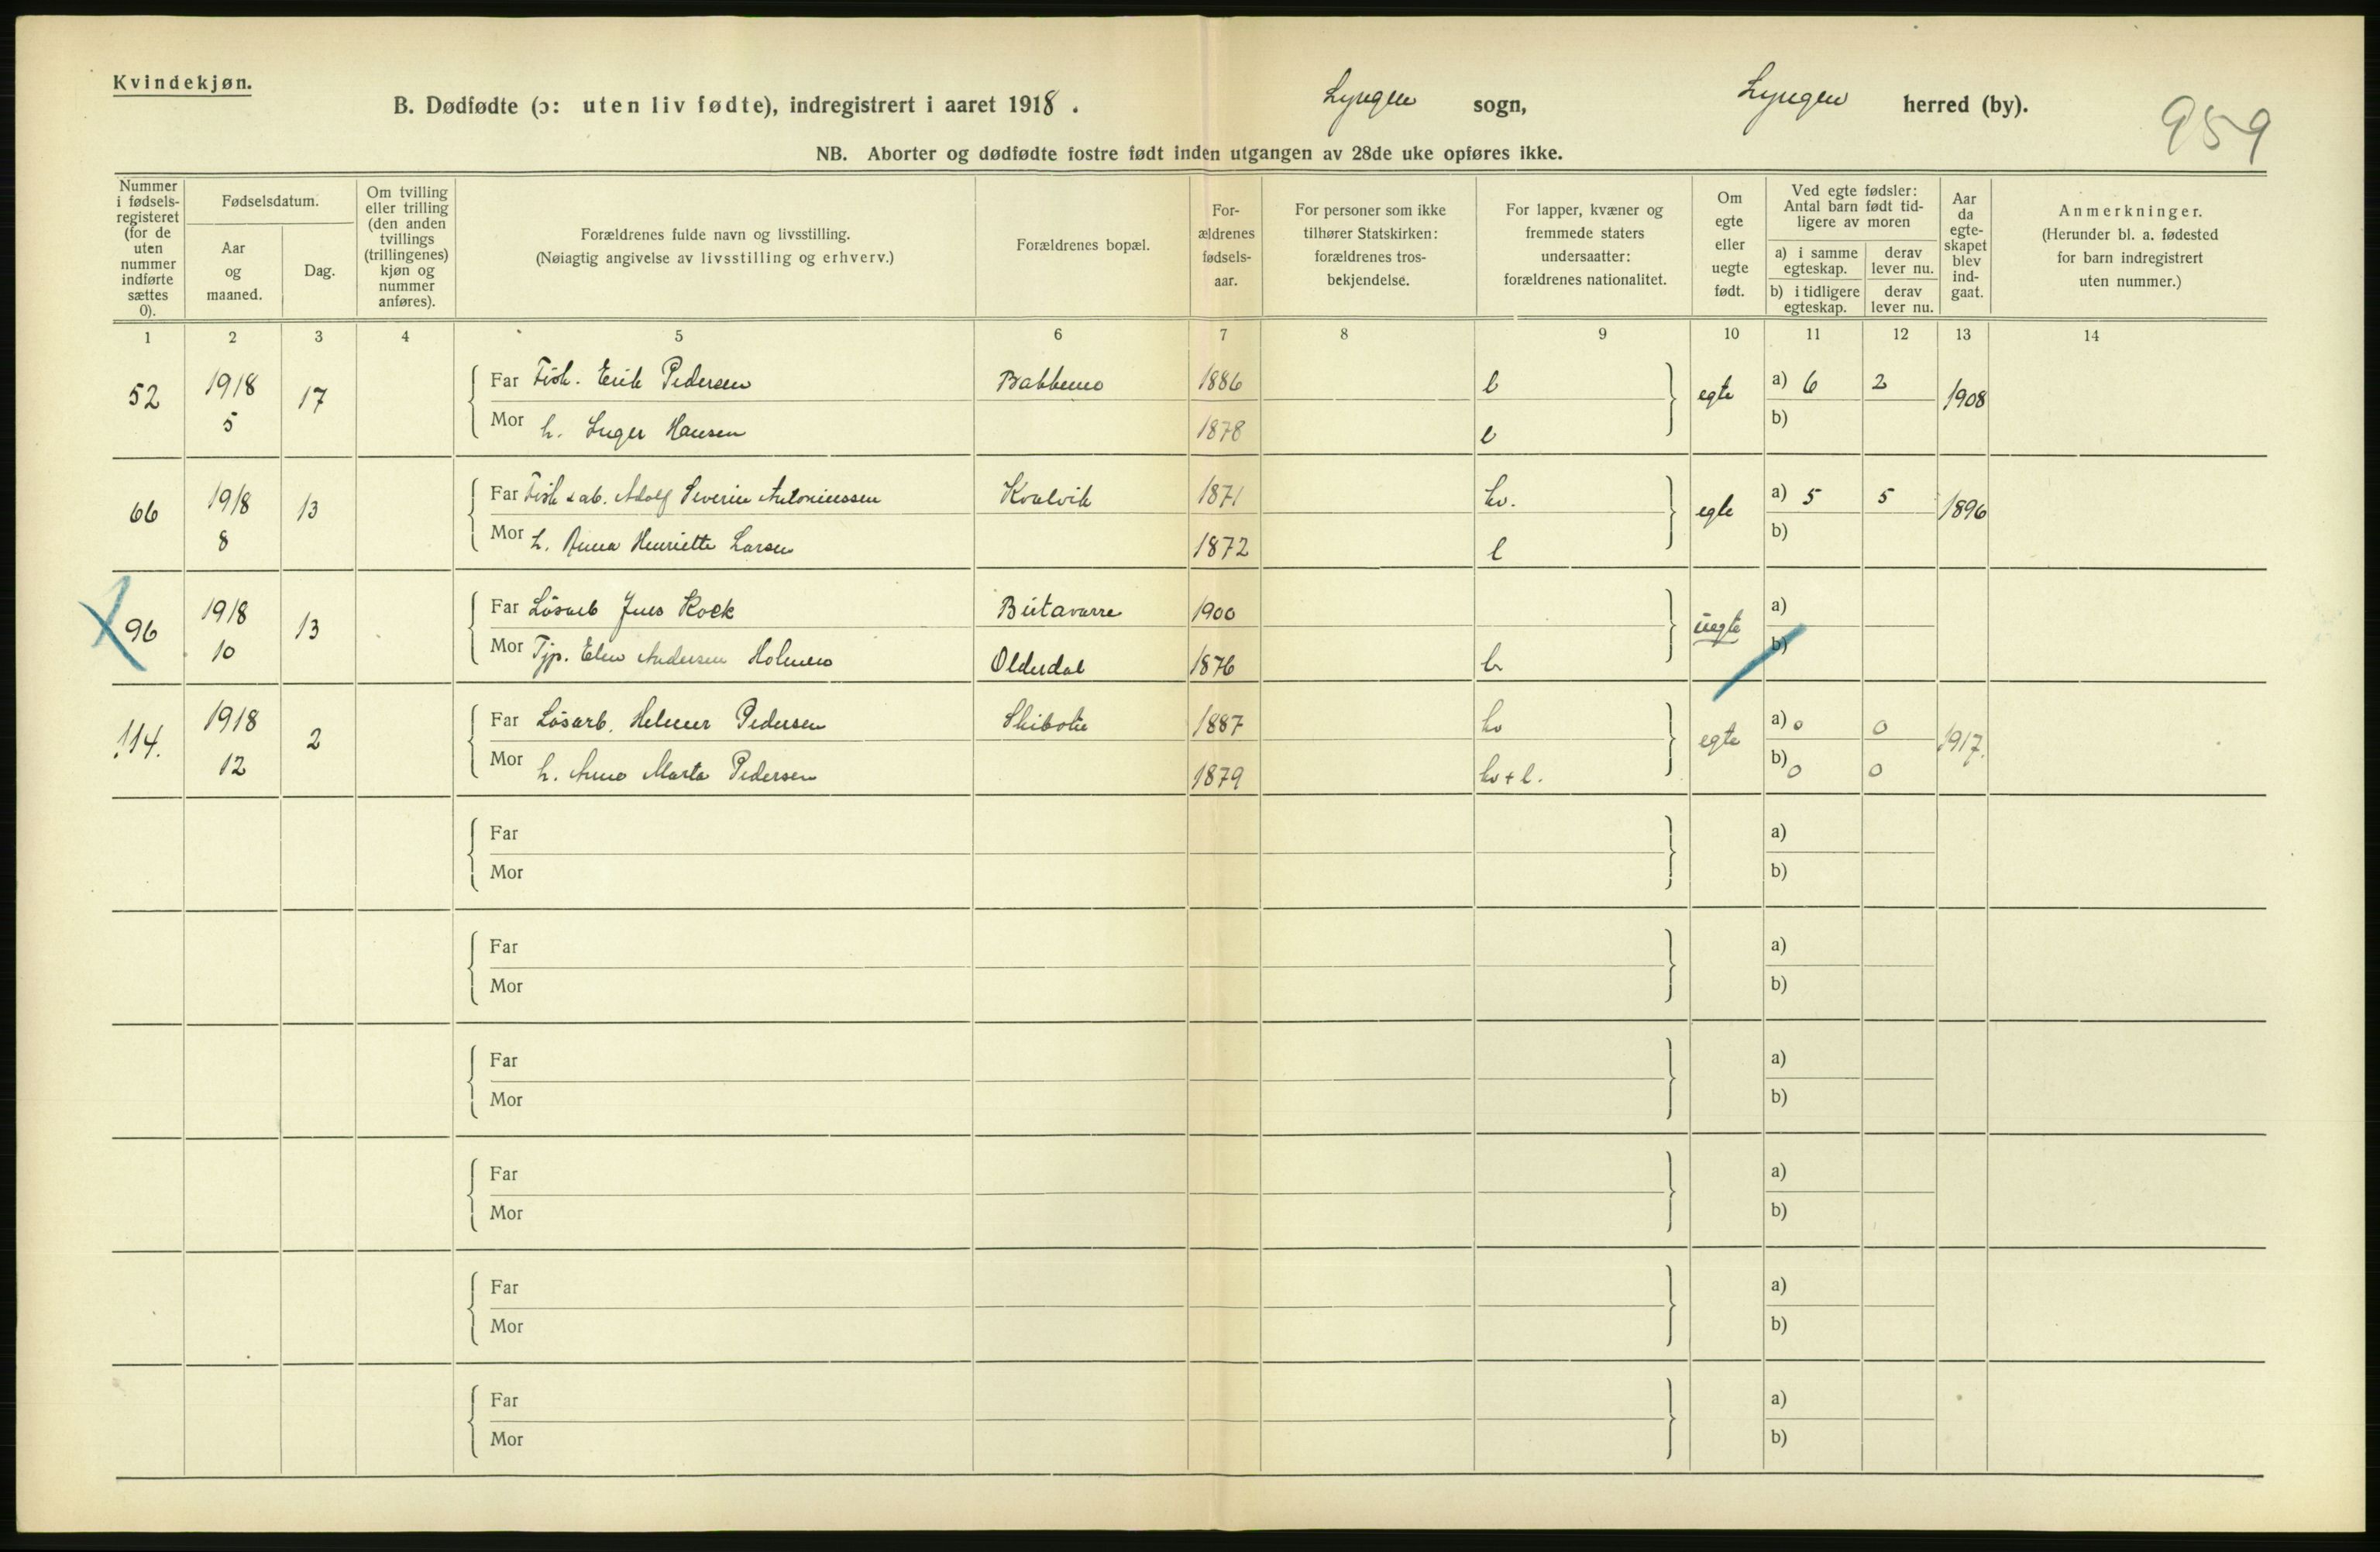 Kvindekjøn.
B. Dødfødte (ɔ: uten liv fødte), indregistrert i aaret 1918. Lyngen sogn, Lyngen herred (by).
959
NB. Aborter og dødfødte fostre født inden utgangen av 28de uke opføres ikke.
Nummer i fødsels-registeret (for de uten nummer indførte sættes 0).
Fødselsdatum.
Aar og maaned.
Dag.
Om tvilling eller trilling (den anden tvillings (trillingenes) kjøn og nummer anføres).
Forældrenes fulde navn og livsstilling.
(Nøiagtig angivelse av livsstilling og erhverv.)
Forældrenes bopæl.
For-ældrenes fødsels-aar.
For personer som ikke tilhører Statskirken: forældrenes tros-bekjendelse.
For lapper, kvæner og fremmede staters undersaatter: forældrenes nationalitet.
Om egte eller uegte født.
Ved egte fødsler: Antal barn født tid-ligere av moren
a) i samme egteskap.
derav lever nu.
b) i tidligere egteskap.
derav lever nu.
Aar da egte-skapet blev ind-gaat.
Anmerkninger.
(Herunder bl. a. fødested for barn indregistrert uten nummer.)
1 2 3 4 5 6 7 8 9 10 11 12 13 14
52 1918 5 17 Far Fisk. Erik Pedersen 1886 l egte a) 6 2 1908
Mor h. Inger Hansen 1878 l b)
66 1918 8 13 Far Fisk & ab. Adolf Severin Antoniussen Kvalvik 1871 kv. egte a) 5 5 1896
Mor h. Anna Henriette Larsen 1872 l b)
96 1918 10 13 Far Løsarb Jens Koek Birtavarre 1900 uegte a)
Mor Tjp. Elen Andersen Holmen Olderdal 1876 b)
114. 1918 12 2 Far Løsarb. Helmer Pedersen Skibotn 1887 kv egte a) 0 0 1917.
Mor h. Anne Marta Pedersen 1879 kv + l. b) 0 0
Far a)
Mor b)
Far a)
Mor b)
Far a)
Mor b)
Far a)
Mor b)
Far a)
Mor b)
Far a)
Mor b)